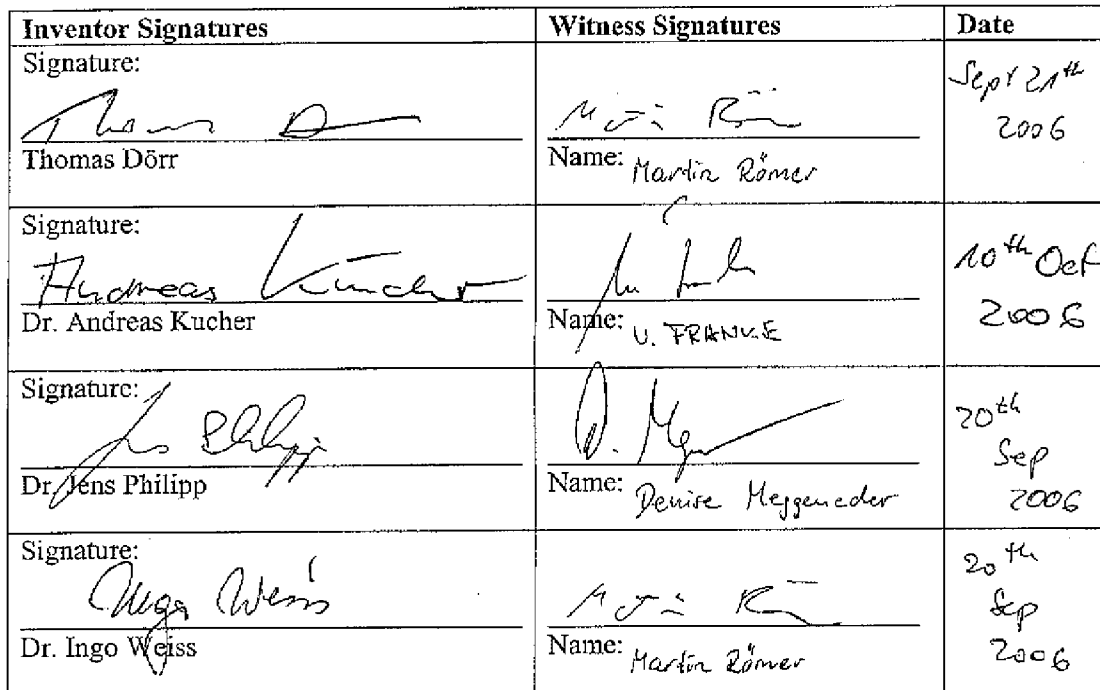 Inventor Signatures
Witness Signatures
Date
Signature:
Thomas Dörr
Name: Martin Römer
Sept 21th
2006
Signature:
Andreas Kucher
Dr. Andreas Kucher
Name: U. FRANKE
10th Oct
2006
Signature:
Jens Philipp
Dr. Jens Philipp
Name: Denise Meggeneder
20th
Sep
2006
Signature:
Ingo Weiss
Dr. Ingo Weiss
Name: Martin Römer
20th
Sep
2006